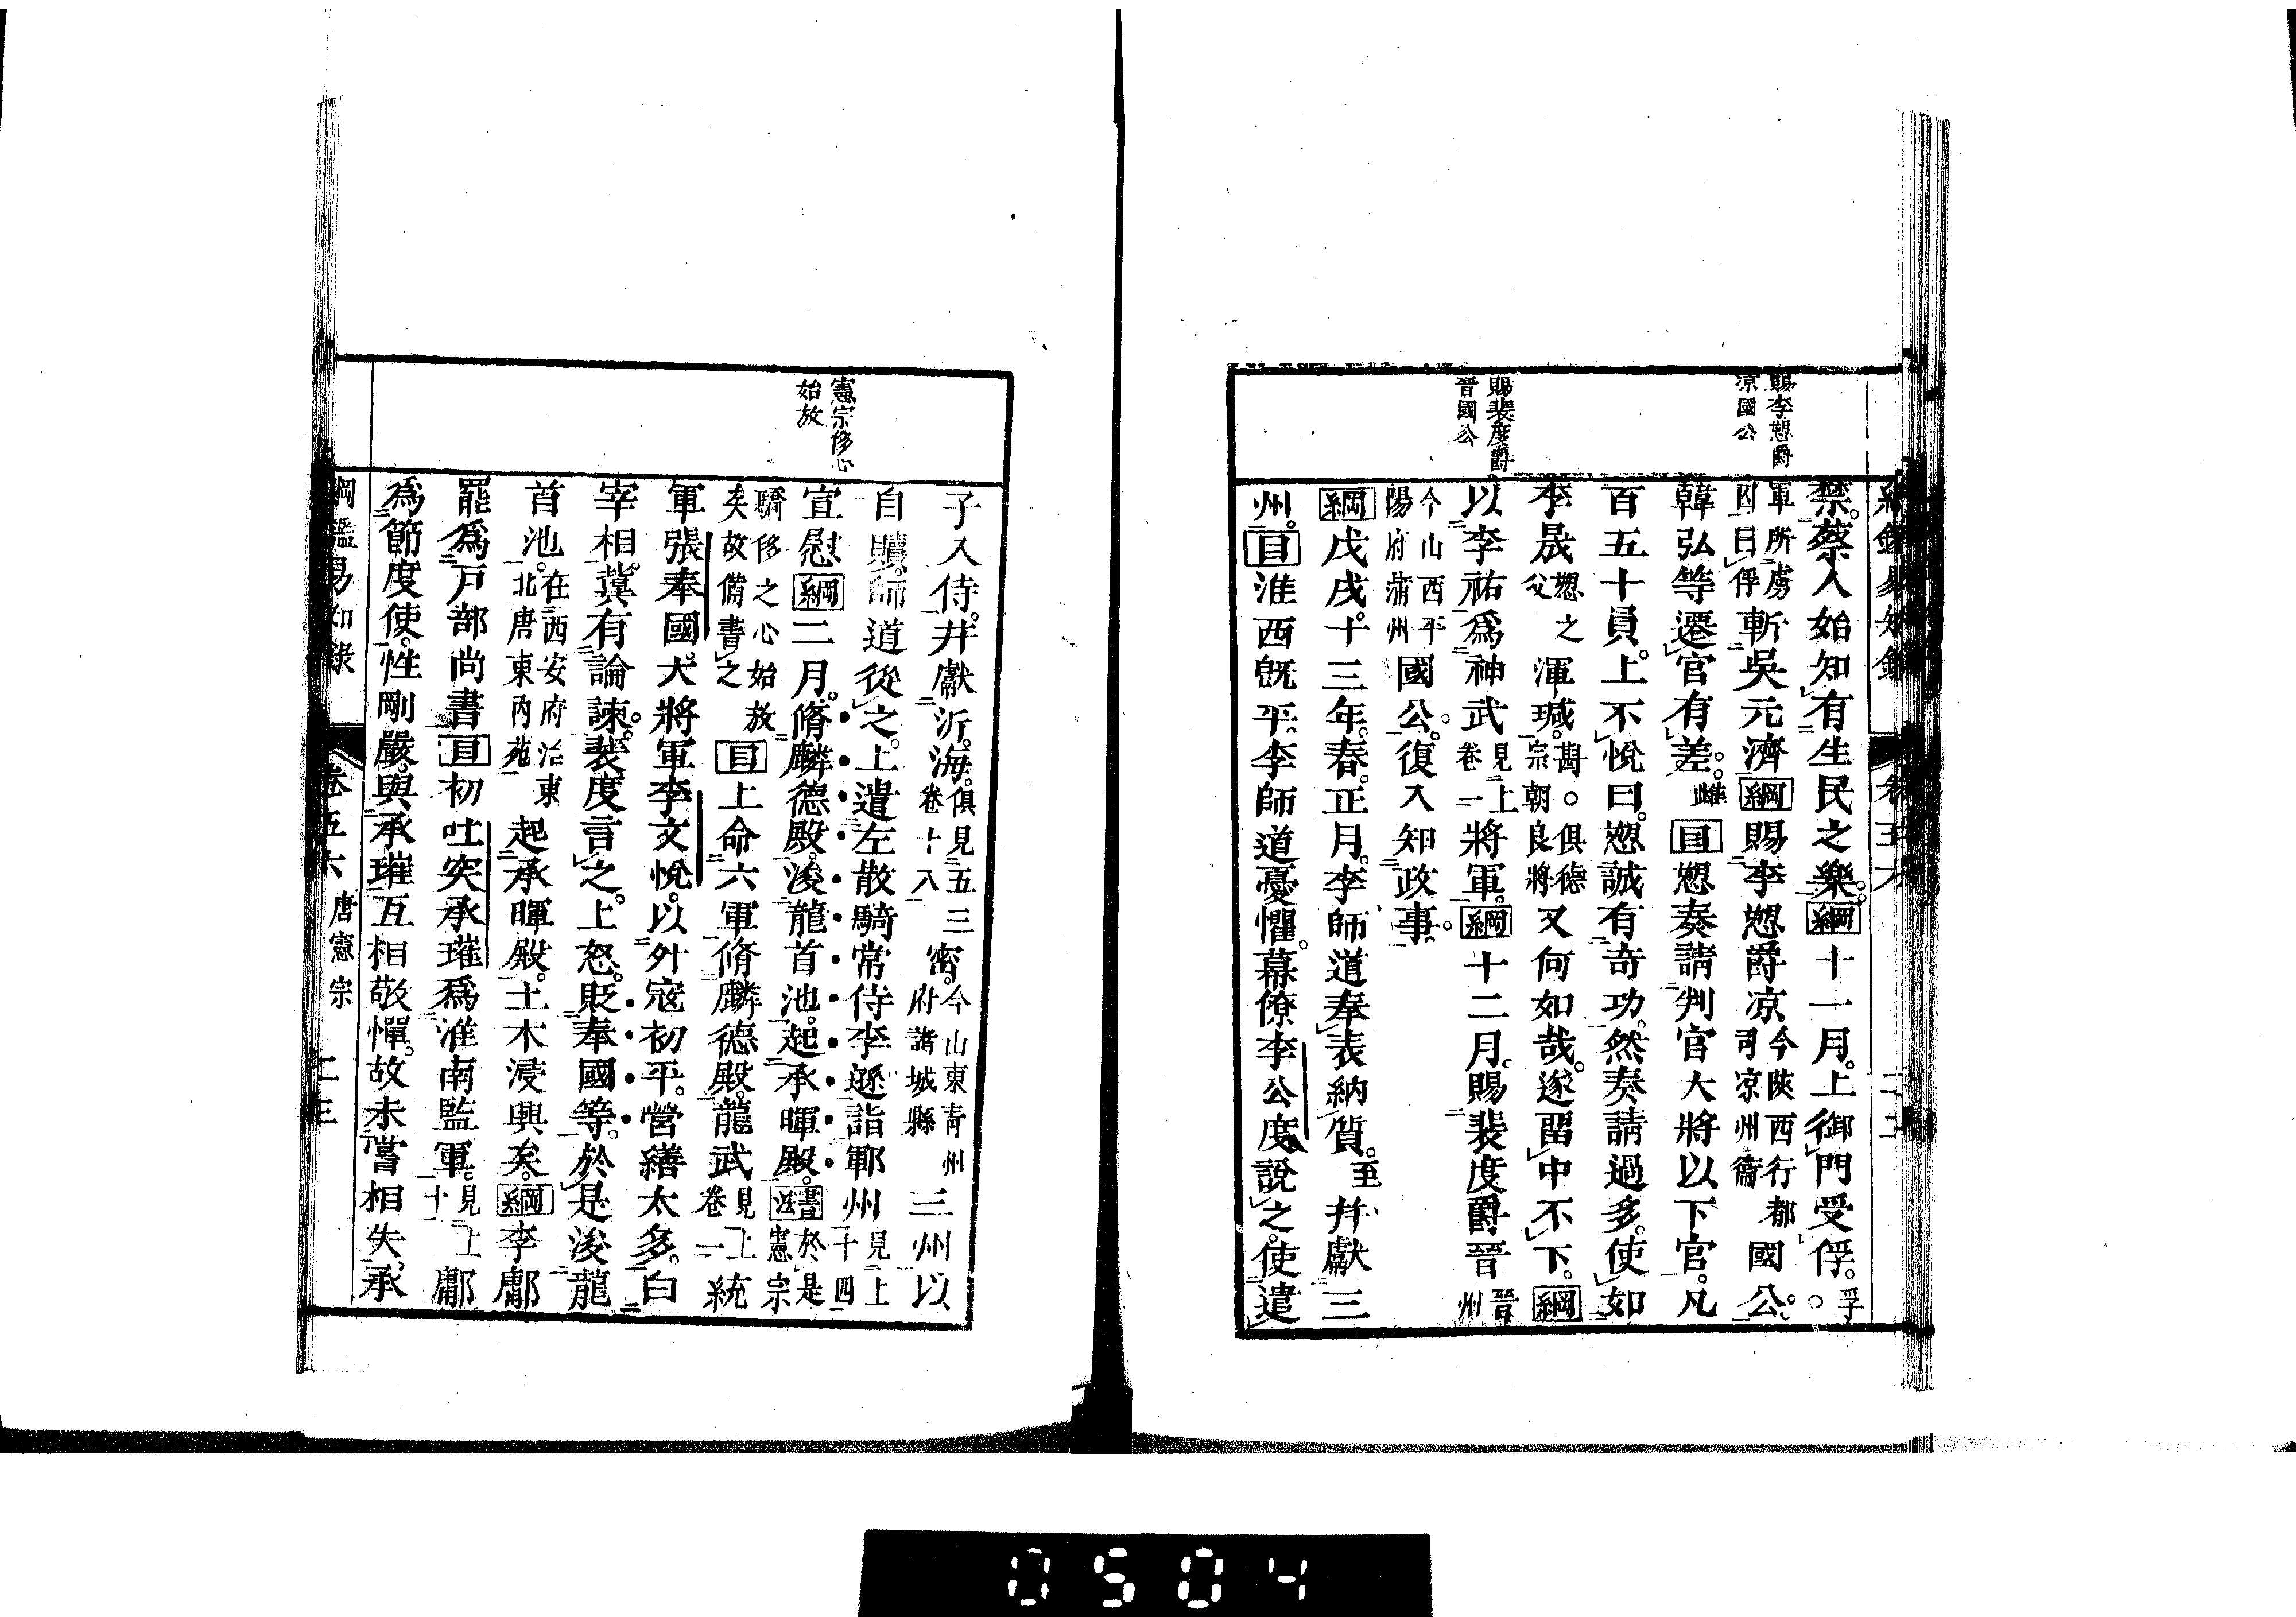 賜李愬爵
凉國公
賜裴度爵
晉國公
禁。蔡人始知有生民之樂。綱十一月。上御門受俘。孚
軍所虜囚曰俘斬吳元濟綱賜李愬爵凉今陝西行都司凉州衞國公。
韓弘等遷官有差。雌目愬奏請判官大將以下官。凡
百五十員。上不悅曰。愬誠有奇功。然奏請過多。使如
李晟愬之父渾瑊。勘。俱德宗朝良將又何如哉。遂留中不下。綱
以李祐爲神武見上卷一將軍。綱十二月。賜裴度爵晉晉州
今山西平陽府蒲州國公。復入知政事。
綱戊戌。十三年。春。正月。李師道奉表納質。至幷獻三
州。目淮西旣平。李師道憂懼。幕僚李公度說之。使遣
憲宗侈心
始放
子入侍。幷獻沂。海。俱見五三卷十八密。今山東靑州府諸城縣三州以
自贖。師道從之。上遣左散騎常侍李遜詣鄆州見上二十四
宣慰綱二月。脩麟德殿。浚龍首池。起承暉殿。書法於是憲宗
驕侈之心始放矣故備書之目上命六軍脩麟德殿。龍武見上卷一統
軍張奉國。大將軍李文悅。以外寇初平。營繕太多。白
宰相。冀有論諫。裴度言之。上怒。貶奉國等。於是浚龍
首池。在西安府治東北唐東內苑起承暉殿。土木浸興矣。綱李鄘
罷爲戶部尚書目初吐突承璀爲淮南監軍。見上十一鄘
爲節度使。性剛嚴。與承璀互相敬憚。故未嘗相失。承
綱鑑易知錄
卷五六
唐憲宗
二三